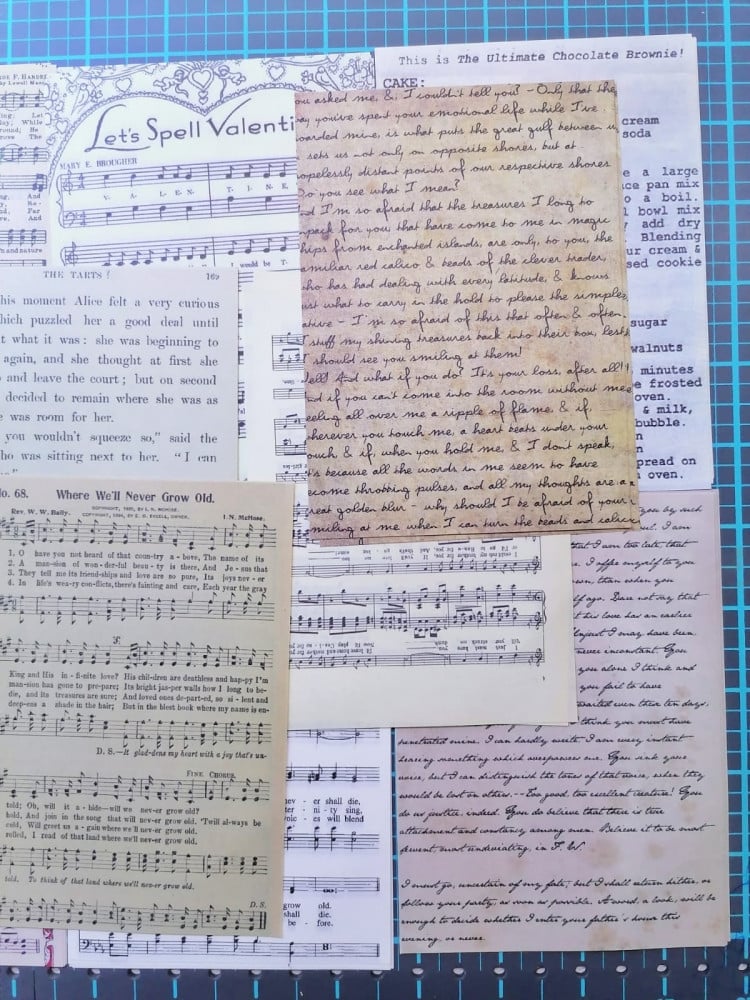 This is The Ultimate Chocolate Brownie!
CAKE:
cream
soda
e a large
ce pan mix
o a boil.
l bowl mix
add dry
Blending
ur cream &
sed cookie
sugar
walnuts
minutes
e frosted
oven.
& milk,
bubble.
n
in
pread on
oven.
Let's Spell Valenti
MARY E. BROUGHER
V. A. L. E. X. T. I. N. E.
I would be T.
ou asked me, &, I couldn't tell you! - Only that the
ay you've spent your emotional life while I've
oarded mine, is what puts the great gulf between u
sets us not only on opposite shores, but at
opelessly distant points of our respective shores
Do you see what I mean?
nd I'm so afraid that the treasures I long to
npack for you, that have come to me in magic
hips from enchanted islands, are only, to you, the
amiliar red calico & beads of the clever trader,
ho has had dealing with every latitude, & knows
ust what to carry in the hold to please the simple
ative - I'm so afraid of this that often & often
I stuff my shining treasures back into their box, lest
I should see you smiling at them!
ell! And what if you do? It's your loss, after all!
nd if you can't come into the room without me
eeling all over me a ripple of flame, & if,
wherever you touch me, a heart beats under your
ouch, & if, when you hold me, & I don't speak,
t's because all the words in me seem to have
ecome throbbing pulses, and all my thoughts are a
reat golden blur - why should I be afraid of your
miling at me when I can turn the beads and calico
THE TARTS! 169
his moment Alice felt a very curious
hich puzzled her a good deal until
t what it was: she was beginning to
again, and she thought at first she
and leave the court; but on second
decided to remain where she was as
e was room for her.
you wouldn't squeeze so," said the
ho was sitting next to her. "I can
No. 68. Where We'll Never Grow Old.
Rev. W. W. Baily. I. N. McHose.
1. O have you not heard of that coun-try a-bove, The name of its
2. A man-sion of won-der-ful beau-ty is there, And Je-sus that
3. They tell me its friend-ships and love are so pure, Its joys nev-er
4. In life's wea-ry con-flicts, there's fainting and care, Each year the gray
King and His in-fi-nite love? His chil-dren are deathless and hap-py I'm
man-sion has gone to pre-pare; Its bright jas-per walls how I long to be-
die, and its treasures are sure; And loved ones de-part-ed, so si-lent and
deep-ens a shade in the hair; But in the blest book where my name is en-
D. S.—It glad-dens my heart with a joy that's un-
FINE. CHORUS.
told; Oh, will it a-bide—will we nev-er grow old?
hold, And join in the song that will nev-er grow old. 'Twill al-ways be
cold, Will greet us a-gain where we'll nev-er grow old.
rolled, I read of that land where we'll nev-er grow old.
told. To think of that land where we'll nev-er grow old.
D. S.
nev - er shall die,
ter - ni - ty sing,
voic - es will blend
grow old.
shall die.
be - fore.
you by such
I am
that I am too late, that
I offer myself to you
own, than when you
lf ago. Dare not say that
his love has an earlier
Unjust I may have been
never inconstant. You
you alone I think and
you fail to have
waited even these ten days,
think you must have
penetrated mine. I can hardly write. I am every instant
hearing something which overpowers me. You sink your
voice, but I can distinguish the tones of that voice, when they
would be lost on others.--Too good, too excellent creature! You
do us justice, indeed. You do believe that there is true
attachment and constancy among men. Believe it to be most
fervent, most undeviating, in F. W.
I must go, uncertain of my fate; but I shall return hither, or
follow your party, as soon as possible. A word, a look, will be
enough to decide whether I enter your father's house this
evening, or never.